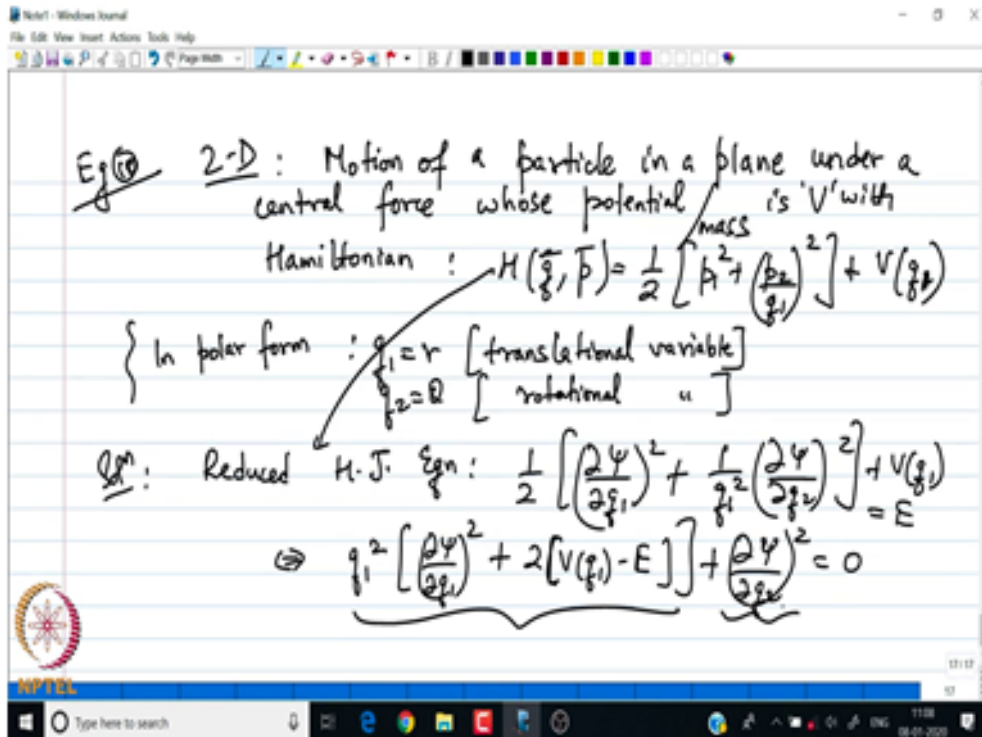 Note1 - Windows Journal
File Edit View Insert Actions Tools Help
Page Width
B I
Eg 2-D : Motion of a particle in a plane under a
central force whose potential is 'V' with
mass
Hamiltonian : H(q̄, p̄) = 1/2 [p₁² + (p₂/q₁)²] + V(q₁)
{ In polar form : q₁ = r [translational variable]
q₂ = θ [rotational "]
Solⁿ : Reduced H.J. Eqn : 1/2 [(∂ψ/∂q₁)² + 1/q₁² (∂ψ/∂q₂)²] + V(q₁)
= E
⇒ q₁² [(∂ψ/∂q₁)² + 2[V(q₁) - E]] + (∂ψ/∂q₂)² = 0
NPTEL
17/17
17
Type here to search
ENG
11:08
08-01-2020